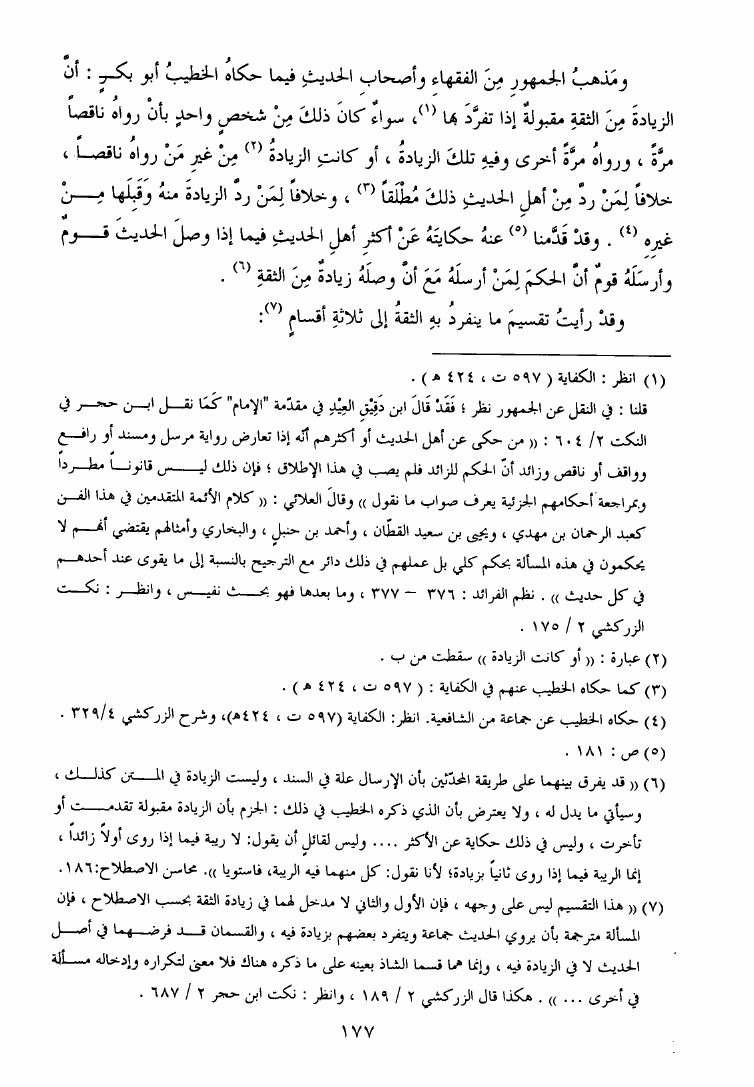 ومَذهبُ الجمهورِ مِنَ الفقهاءِ وأصحابِ الحديثِ فيما حكاهُ الخطيبُ أبو بكـرٍ : أنَّ
الزيادةَ مِنَ الثقةِ مقبولةٌ إذا تفرَّدَ بها (١)، سواءٌ كانَ ذلكَ مِنْ شخصٍ واحدٍ بأنْ رواهُ ناقصاً
مرَّةً ، ورواهُ مرَّةً أخرى وفيهِ تلكَ الزيادةُ ، أو كانتِ الزيادةُ (٢) مِنْ غيرِ مَنْ رواهُ ناقصـاً ،
خلافاً لِمَنْ ردَّ مِنْ أهلِ الحديثِ ذلكَ مُطْلَقاً (٣) ، وخلافاً لِمَنْ ردَّ الزيادةَ منهُ وَقَبِلَها مِـــنْ
غيرِهِ (٤) . وقدْ قَدَّمنا (٥) عنهُ حكايتَهُ عَنْ أكثرِ أهلِ الحديثِ فيما إذا وصلَ الحديثَ قـــومٌ
وأرسَلَهُ قومٌ أنَّ الحكمَ لِمَنْ أرسلَهُ مَعَ أنَّ وصلَهُ زيادةٌ مِنَ الثقةِ (٦) .
وقدْ رأيتُ تقسيمَ ما ينفردُ بهِ الثقةُ إلى ثلاثةِ أقسامٍ (٧):
(١) انظر : الكفاية ( ٥٩٧ ت ، ٤٢٤ هـ ) .
قلنا : في النقل عن الجمهور نظر ؛ فَقَدْ قَالَ ابن دَقِيْقِ العِيْدِ في مقدّمة "الإمام" كَمَا نقـل ابـن حجـر في
النكت ٢/ ٦٠٤ : (( من حكى عن أهل الحديث أو أكثرهم أنّه إذا تعارض رواية مرسل ومسند أو رافـع
وواقف أو ناقص وزائد أنّ الحكم للزائد فلم يصب في هذا الإطلاق ؛ فإن ذلك ليـــس قانونـاً مطـرداً
وبمراجعة أحكامهم الجزئية يعرف صواب ما نقول )) وقالَ العلائي : (( كلام الأئمة المتقدمين في هذا الفـن
كعبد الرحمان بن مهدي ، ويحيى بن سعيد القطّان ، وأحمد بن حنبلٍ ، والبخاري وأمثالهم يقتضي أنهـم لا
يحكمون في هذه المسألة بحكم كلي بل عملهم في ذلك دائر مع الترجيح بالنسبة إلى ما يقوى عند أحدهـم
في كل حديث )) . نظم الفرائد : ٣٧٦ – ٣٧٧ ، وما بعدها فهو بحـث نفيـس ، وانظـر : نكـت
الزركشي ٢ / ١٧٥ .
(٢) عبارة : (( أو كانت الزيادة )) سقطت من ب .
(٣) كما حكاه الخطيب عنهم في الكفاية : ( ٥٩٧ ت ، ٤٢٤ هـ ) .
(٤) حكاه الخطيب عن جماعة من الشافعية. انظر: الكفاية (٥٩٧ ت ، ٤٢٤هـ)، وشرح الزركشي ٣٢٩/٤ .
(٥) ص : ١٨١ .
(٦) (( قد يفرق بينهما على طريقة المحدّثين بأن الإرسال علة في السند ، وليست الزيادة في المـــتن كذلــك ،
وسيأتي ما يدل له ، ولا يعترض بأن الذي ذكره الخطيب في ذلك : الجزم بأن الزيادة مقبولة تقدمـــت أو
تأخرت ، وليس في ذلك حكاية عن الأكثر .... وليس لقائلٍ أن يقول: لا ريبة فيما إذا روى أولاً زائداً ،
إنما الريبة فيما إذا روى ثانياً بزيادة؛ لأنا نقول: كل منهما فيه الريبة، فاستويا )). محاسن الاصطلاح:١٨٦.
(٧) (( هذا التقسيم ليس على وجهه ، فإن الأول والثاني لا مدخل لهما في زيادة الثقة بحسب الاصطلاح ، فإن
المسألة مترجمة بأن يروي الحديث جماعة ويتفرد بعضهم بزيادة فيه ، والقسمان قـــد فرضـهـما في أصـل
الحديث لا في الزيادة فيه ، وإنما هما قسما الشاذ بعينه على ما ذكره هناك فلا معنى لتكراره وإدخاله مسـألة
في أخرى ... )) . هكذا قال الزركشي ٢ / ١٨٩ ، وانظر : نكت ابن حجر ٢ / ٦٨٧ .
١٧٧